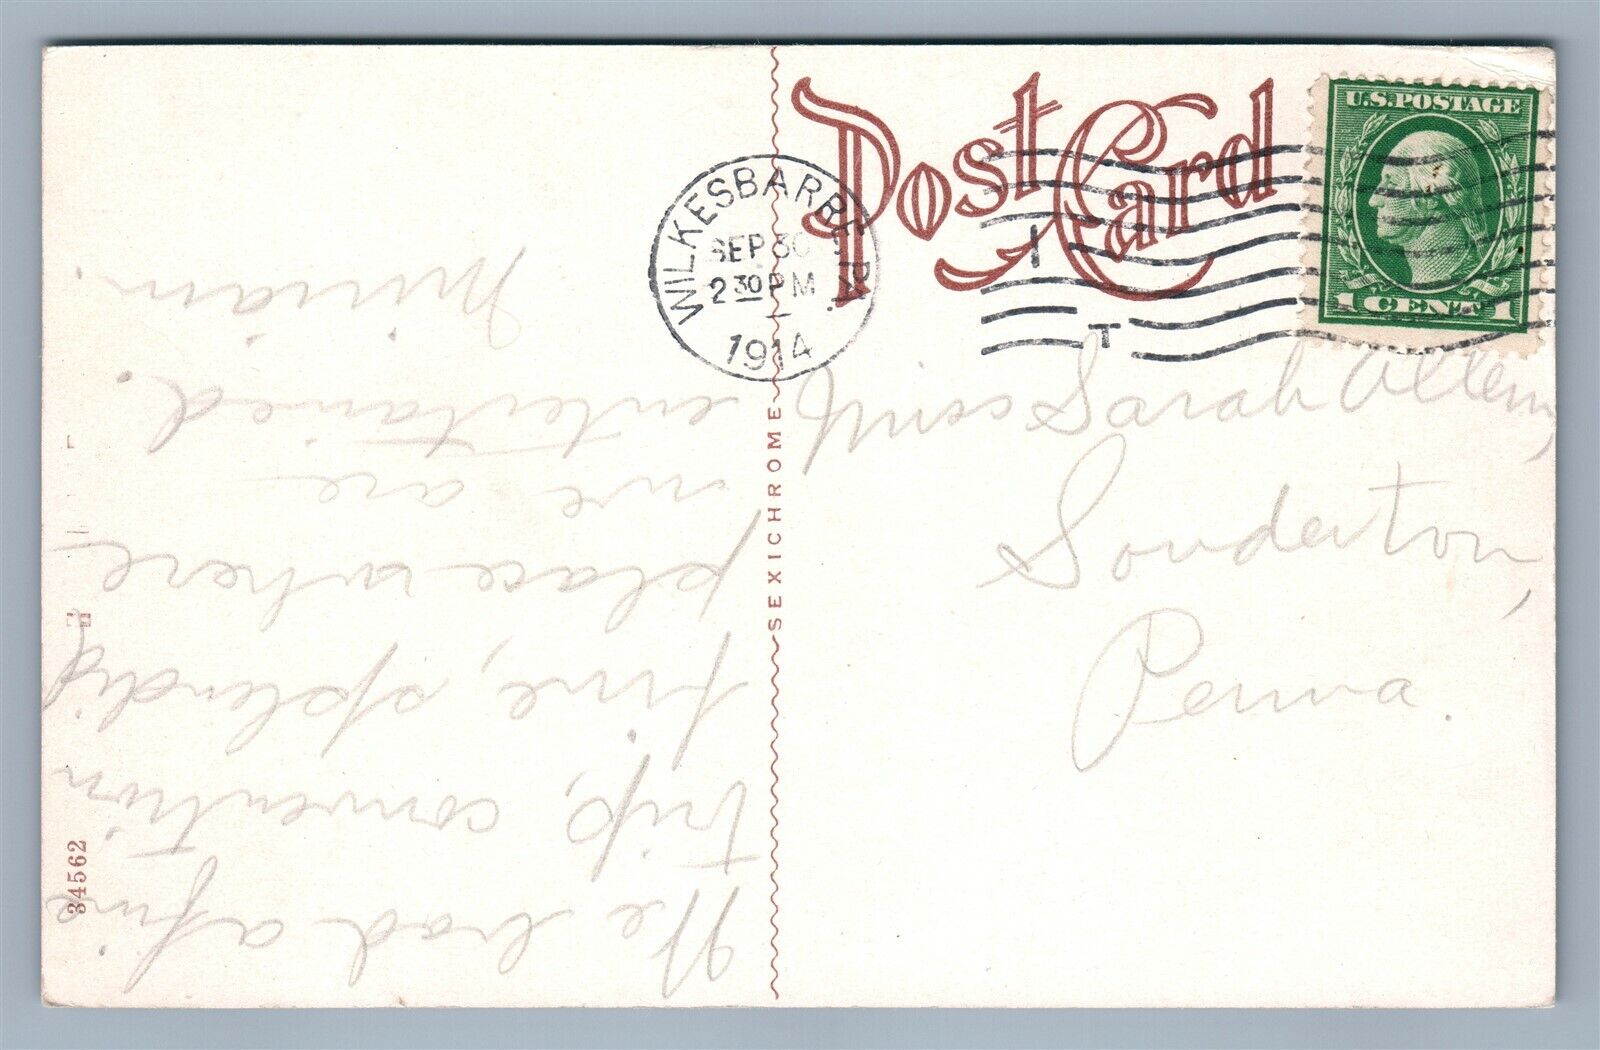 Post Card
U.S. POSTAGE
1 CENT 1
WILKESBARRE, PA.
SEP 30
2 30 PM
1914
I
T
Miss Sarah
Souderton,
Penna.
SEXICHROME
34562
We had a fine
trip, convention
fine, splendid
place where
we are
entertained.
Miriam.